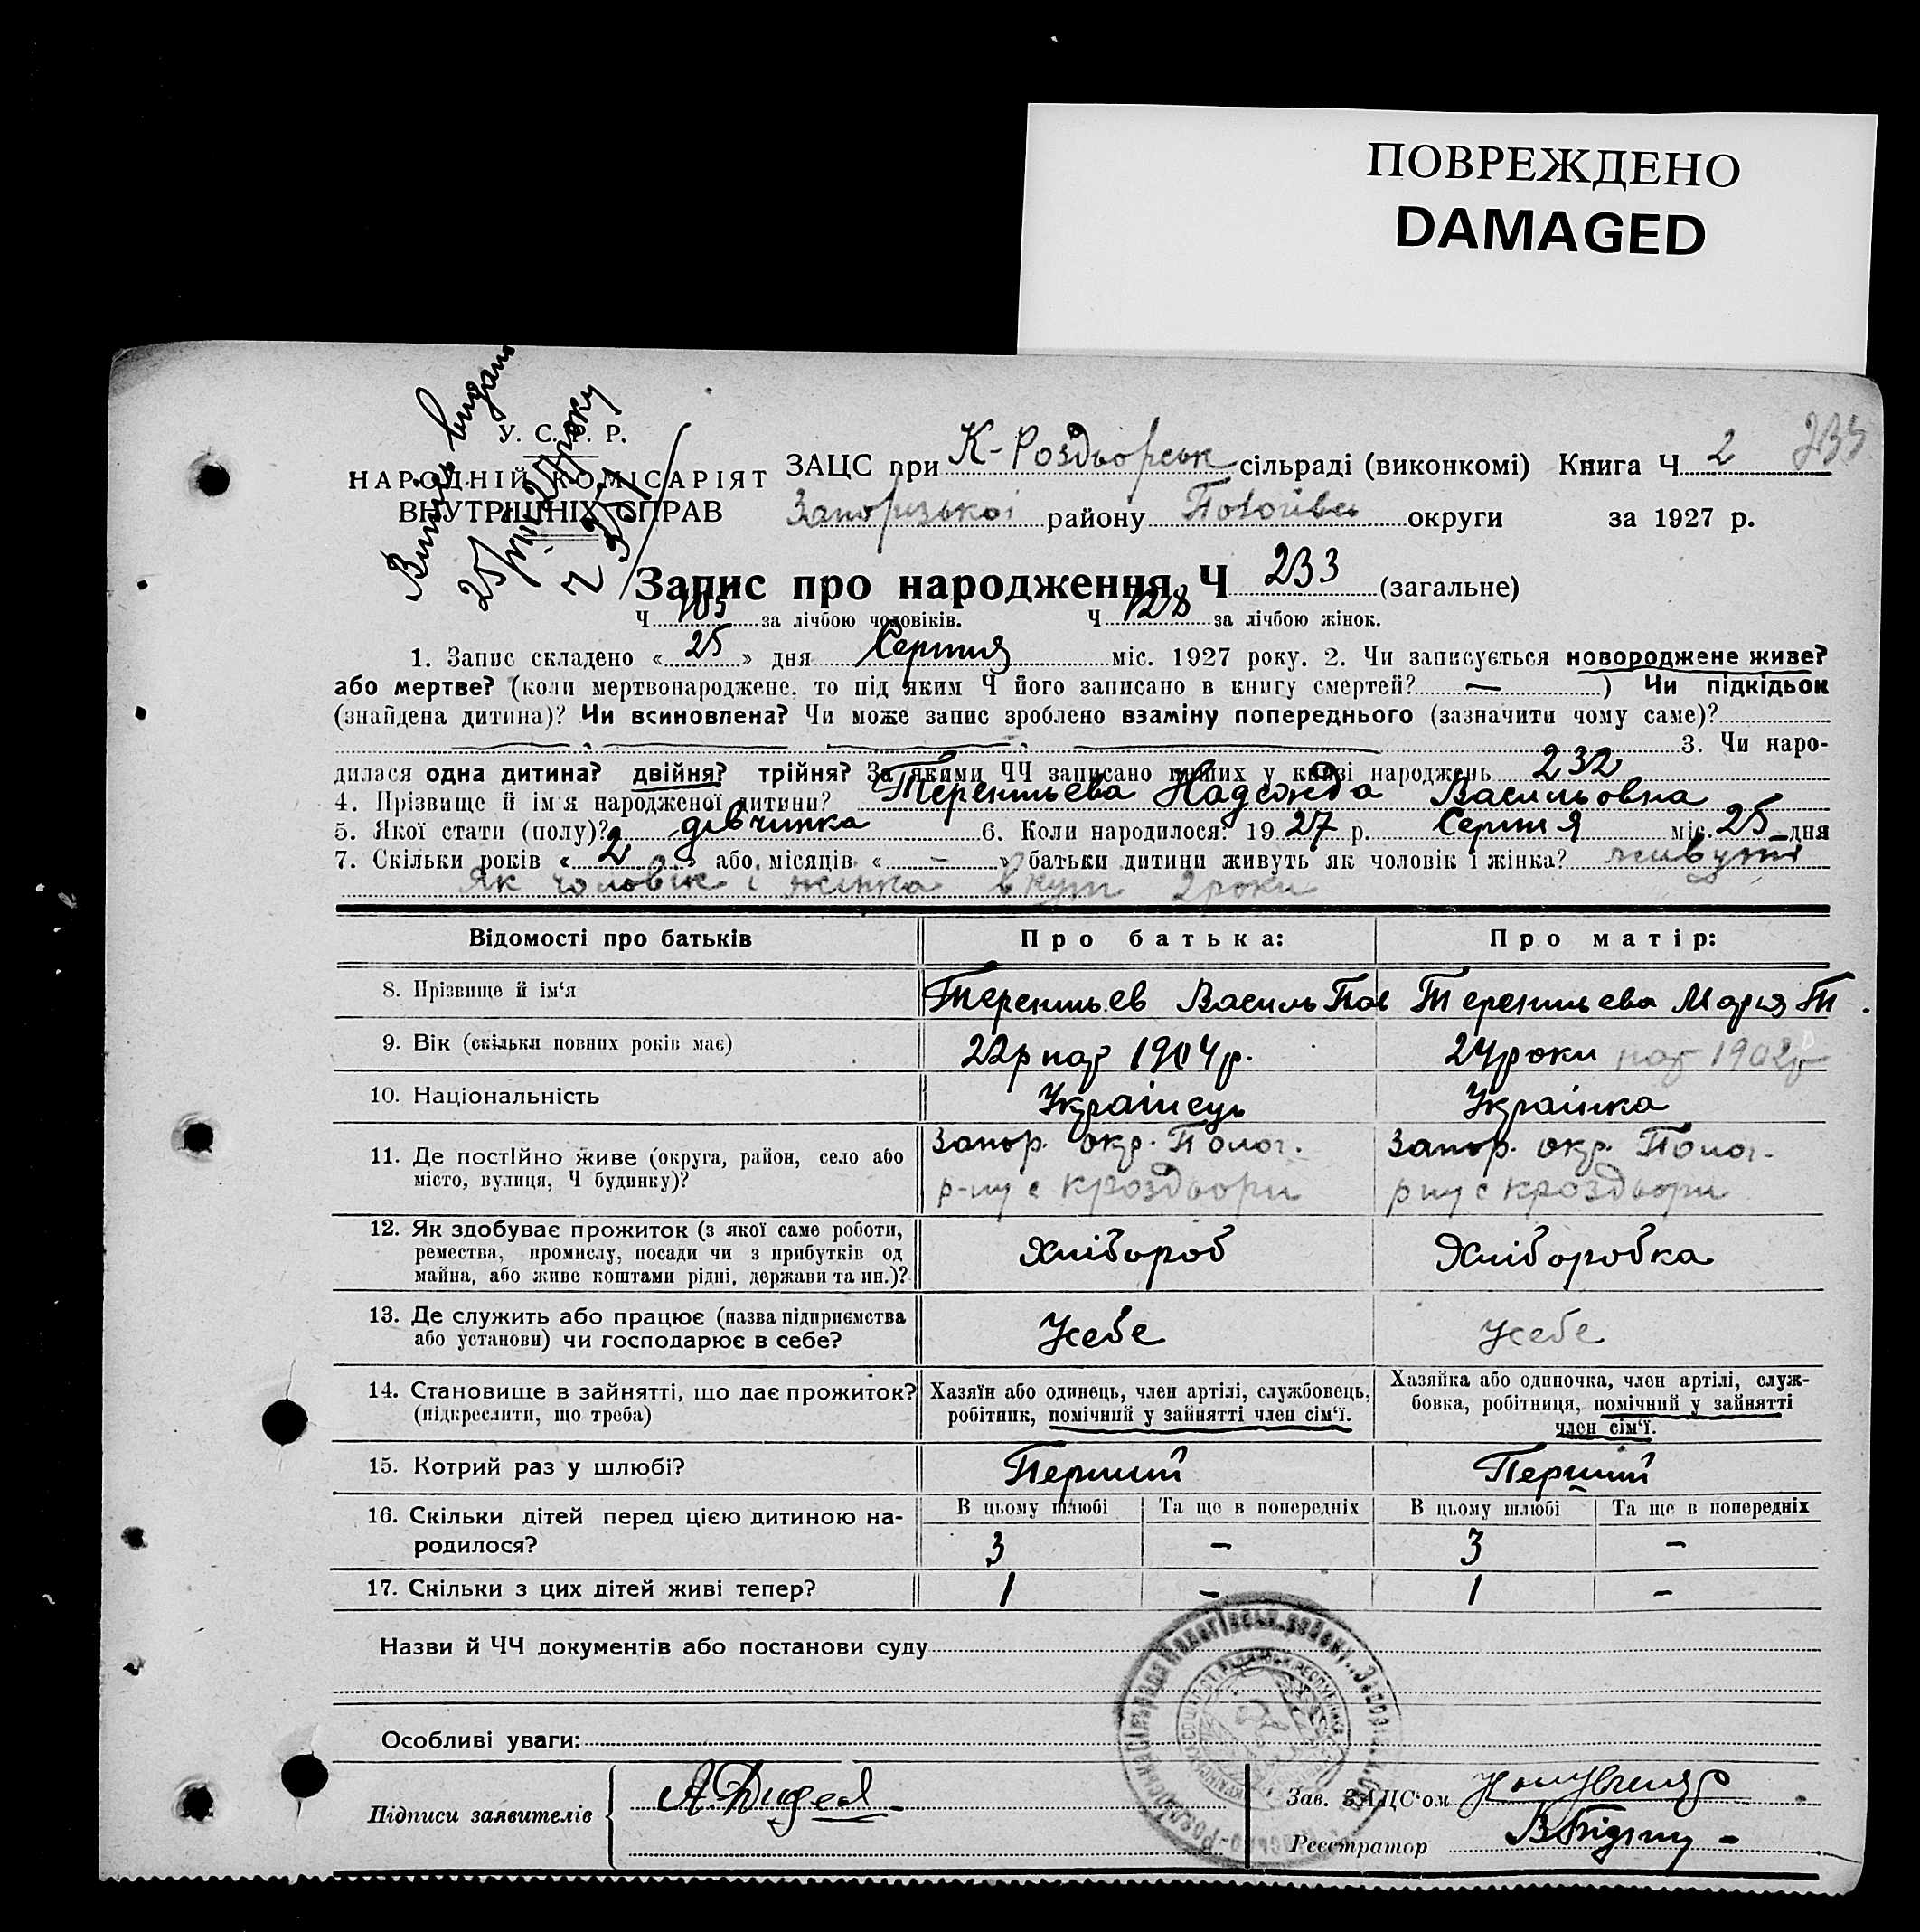 ПОВРЕЖДЕНО
DAMAGED
Витяг видано
25/
У. С. Р. Р.
НАРОДНІЙ КОМІСАРІЯТ
ВНУТРІШНІХ СПРАВ
ЗАЦС при К-Роздьорськ сільраді (виконкомі) Книга Ч 2
Запорізької району округи за 1927 р.
Запис про народження Ч 233 (загальне)
Ч 105 за лічбою чоловіків. Ч 128 за лічбою жінок.
1. Запис складено « 25 » дня Серпня міс. 1927 року. 2. Чи записується новороджене живе?
або мертве? (коли мертвонароджене, то під яким Ч його записано в книгу смертей? — ) Чи підкідьок
(знайдена дитина)? Чи всиновлена? Чи може запис зроблено взаміну попереднього (зазначити чому саме)?
3. Чи наро-
дилася одна дитина? двійня? трійня? За якими ЧЧ записано инших у книзі народжень 232
4. Прізвище й ім'я народженої дитини? Терентьева Надежда Васильовна
5. Якої стати (полу)? дівчинка 6. Коли народилося: 1927 р. Серпня міс. 25 дня
7. Скільки років « 2 » або місяців « - » батьки дитини живуть як чоловік і жінка? живуть
як чоловік і жінка 2 роки
Відомості про батьків Про батька: Про матір:
8. Прізвище й ім'я Терентьев Василь Пав Терентьева Марья Т.
9. Вік (скільки повних років має) 22 р нар 1904 р. 24 роки нар 1902 р
10. Національність Українець Українка
11. Де постійно живе (округа, район, село або місто, вулиця, Ч будинку)? Запор. окр. Полог. р-ну с Кроздьори Запор. окр. Полог. р ну с Кроздьори
12. Як здобуває прожиток (з якої саме роботи, ремества, промислу, посади чи з прибутків од майна, або живе коштами рідні, держави та ин.)? Хлібороб Хліборобка
13. Де служить або працює (назва підприємства або установи) чи господарює в себе? Усебе Усебе
14. Становище в зайнятті, що дає прожиток? (підкреслити, що треба) Хазяїн або одинець, член артілі, службовець, робітник, помічний у зайнятті член сім'ї. Хазяйка або одиночка, член артілі, служ-бовка, робітниця, помічний у зайнятті член сім'ї.
15. Котрий раз у шлюбі? Перший Перший
16. Скільки дітей перед цією дитиною на-родилося? В цьому шлюбі Та ще в попередніх В цьому шлюбі Та ще в попередніх
3 - 3 -
17. Скільки з цих дітей живі тепер? 1 - 1 -
Назви й ЧЧ документів або постанови суду
Особливі уваги:
Підписи заявителів
Зав. ЗАЦС'ом
Реєстратор